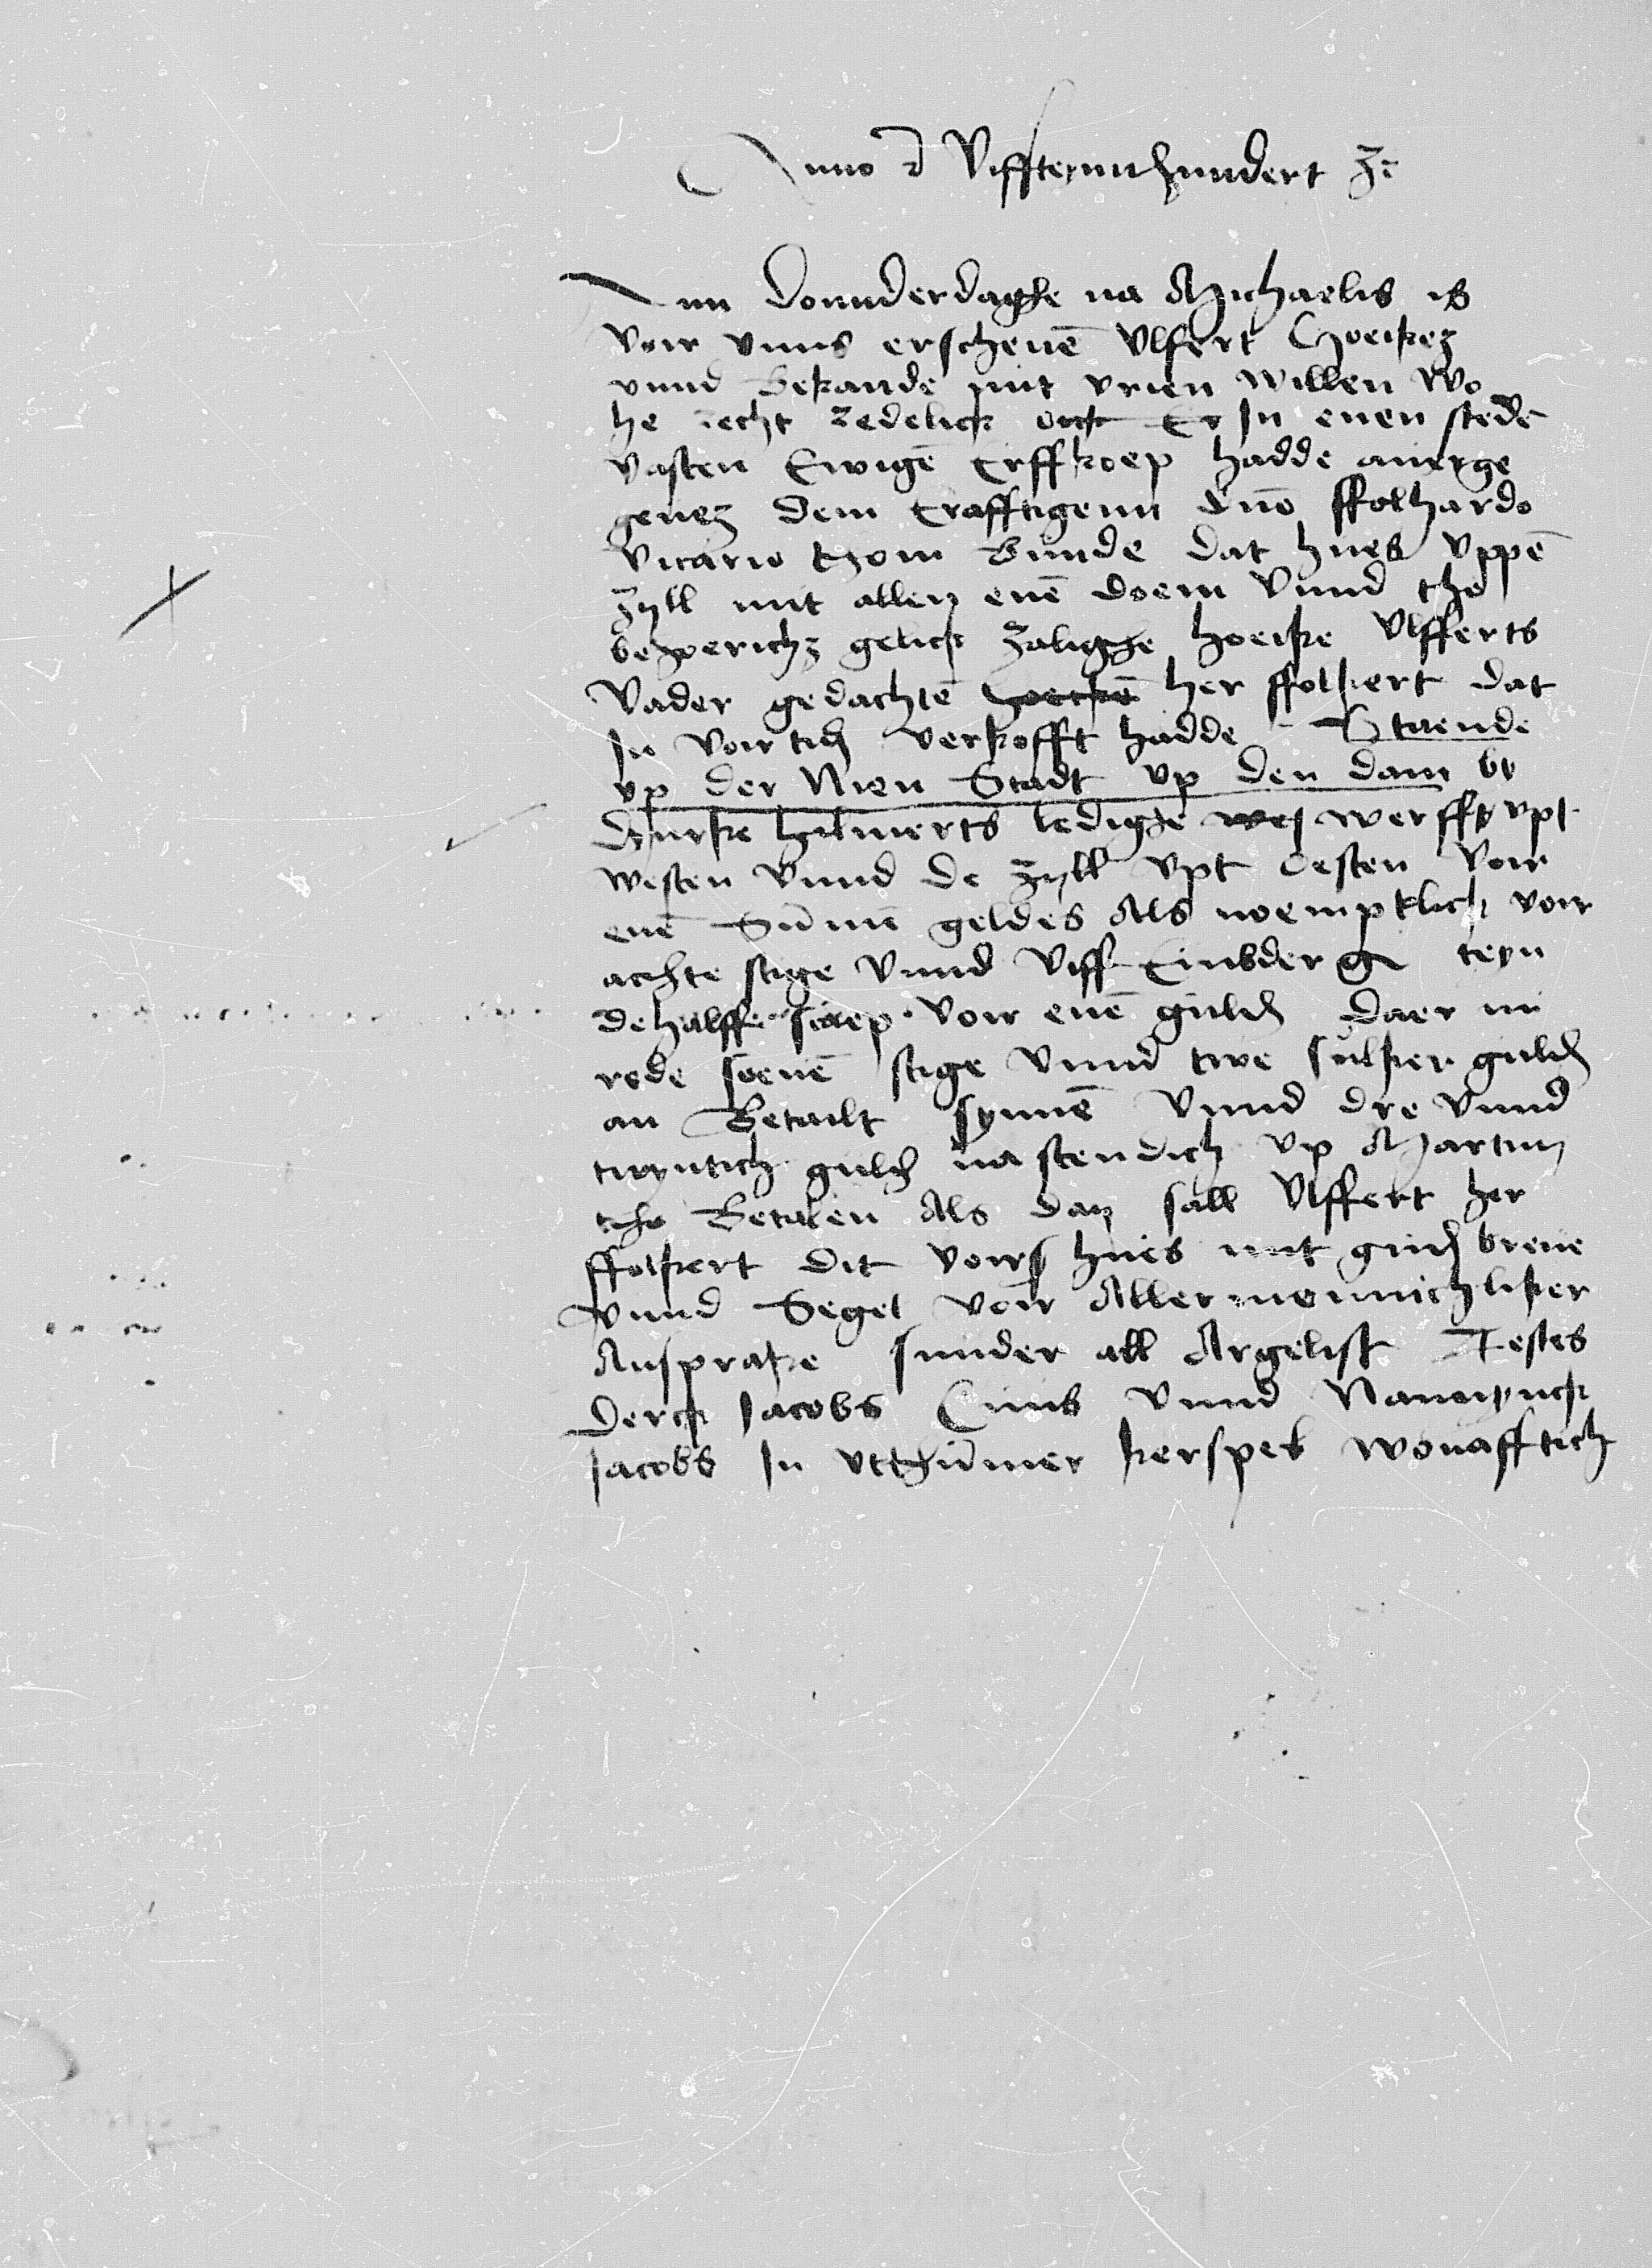 Anno d Viffteynnhundert z:
Ann donnderdaghe na Michaelis is
voir vnns erschenē Vlfert Hoeikez
vnnd Bekande mit vrien willen wo
he recht redelick vnd Er In enen stedē
vasten Ewigē Erffkoep hadde auerge
geuen dem Erafftigenn dno ffolhardo
vicario thom Bunde dat hues vppē
Zyll mit allen enē doem vnnd tho
behoerich gelick zalighe hoeike Vlfferts
vader gedachtē her ffolkert dat
In voirtich verkofft hadde Staende
vp der Nien Stadt vp den dam by
hummerts ledighe werff vpt
westen vnnd de Zyll vpt Oesten voir
enē Sūmē geldes Als noemptlick voir
achte stige vnnd viff Embder g teyn
dehalff scaep voir enē guld daer in
rede soeuē stige vnnd twe sulker guld
an Betailt synnē vnnd dre vnnd
twyntich guld nastendich vp Martin
tho Betalen Als dan sall Vlffert her
ffolkert dit voirs hues mit gud breue
vnnd Segel voir Allermennichliker
Ansprake sunder all Argelist Testes
derck Jacobs Ciuis vnnd Nannynck
Jacobs In vtthūmer kerspel wonafftich